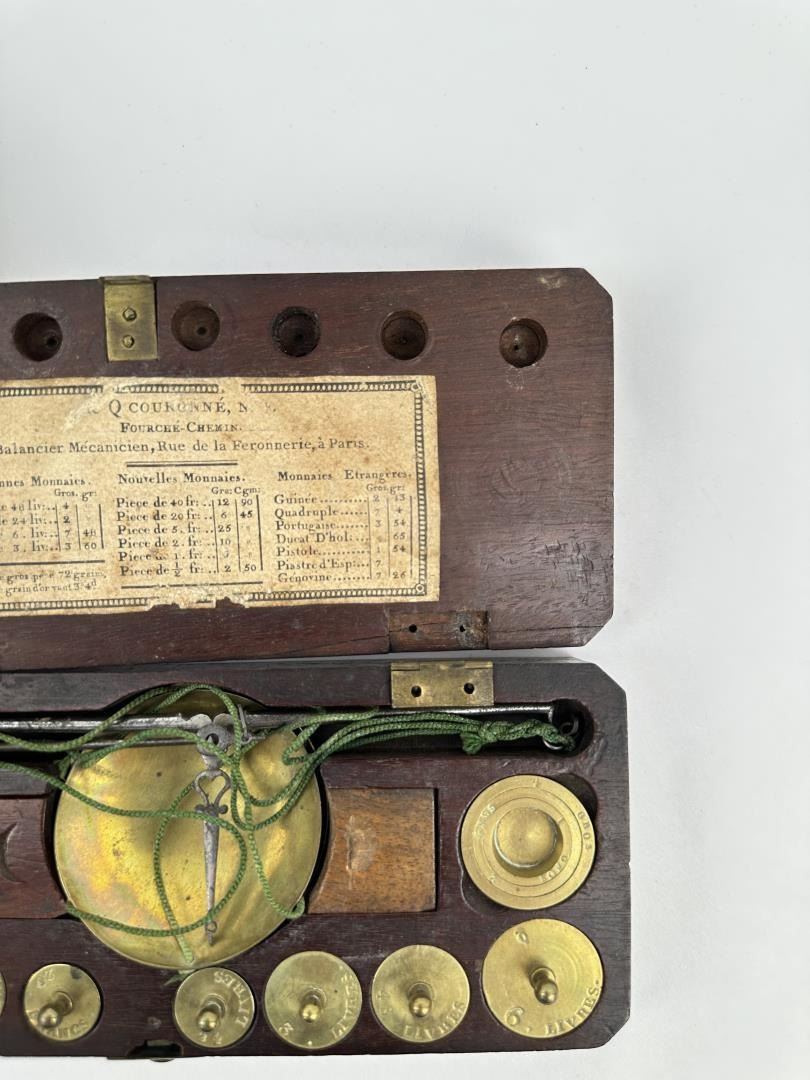 Q COURONNÉ, N
FOURCHÉ-CHEMIN.
Balancier Mécanicien, Rue de la Feronnerie, à Paris.
nnes Monnaies.
Gros. gr:
e 48 liv:.. 4
e 24 liv:.. 2
6. liv:.. 7 48
3. liv: 3 60
gros pe e 72 grains,
grain d'or vaut 3 4d
Nouvelles Monnaies.
Gra: Cgm:
Piece de 40 fr:.. 12 90
Piece de 20 fr:.. 6 45
Piece de 5. fr:.. 25
Piece de 2. fr:.. 10
Piece 1. fr:..
Piece de ½ fr:.. 2 50
Monnaies Etrangeres.
Gros. gr:
Guinée.......... 2 13
Quadruple....... 7 4
Portugaise...... 3 54
Ducat D'hol:.... 65
Pistole......... 1 54
Piastre d'Esp:.. 7
Génovine........ 7 26
GROS
LIVRES
3 LIVRES.
LIVRES
6 LIVRES.